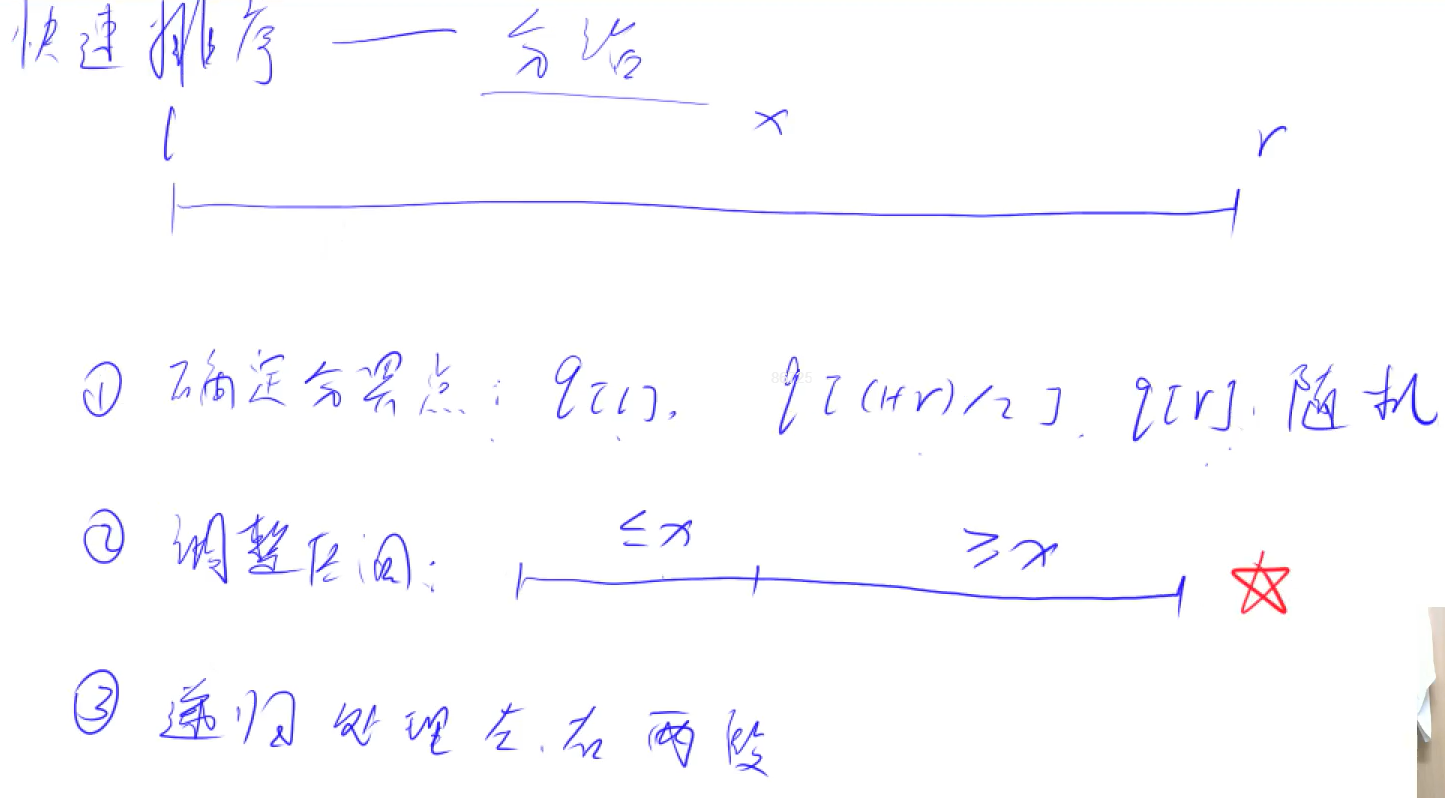 快速排序 —— 分治
l x r
① 确定分界点: q[l], q[(l+r)/2], q[r], 随机
② 调整区间: ≤x ≥x
③ 递归处理左、右两段